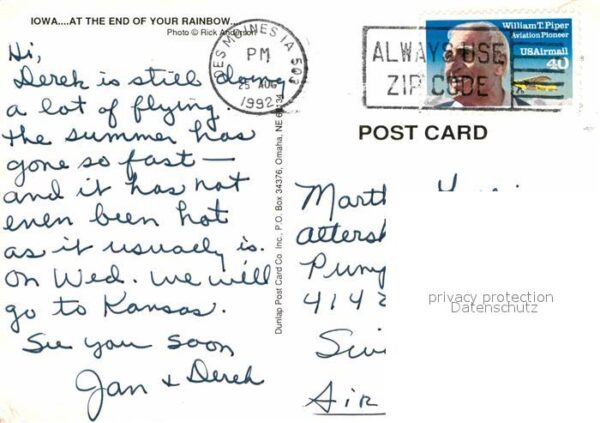 IOWA....AT THE END OF YOUR RAINBOW....
Photo © Rick Anderson
Hi,
Derek is still doing
a lot of flying.
the summer has
gone so fast —
and it has not
even been hot
as it usually is.
On Wed. we will
go to Kansas.
See you soon
Jan & Derek
DES MOINES IA 503
PM
25 AUG
1992
ALWAYS USE
ZIP CODE
William T. Piper
Aviation Pioneer
USAirmail
40
POST CARD
Dunlap Post Card Co. Inc., P.O. Box 34376, Omaha, NE 68134
Mart
Pun
414
privacy protection
Datenschutz
Air